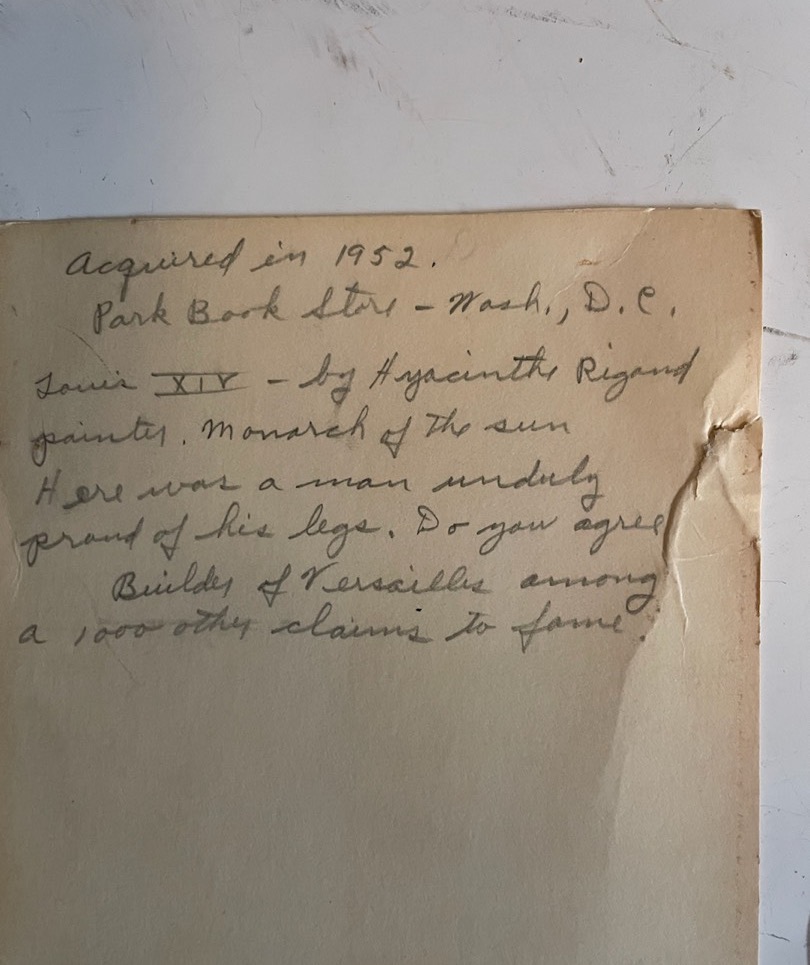 Acquired in 1952.
Park Book Store – Wash., D.C.
Louis XIV – by Hyacinthe Rigaud
painter. Monarch of the sun
Here was a man unduly
proud of his legs. Do you agree
Builder of Versailles among
a 1000 other claims to fame.